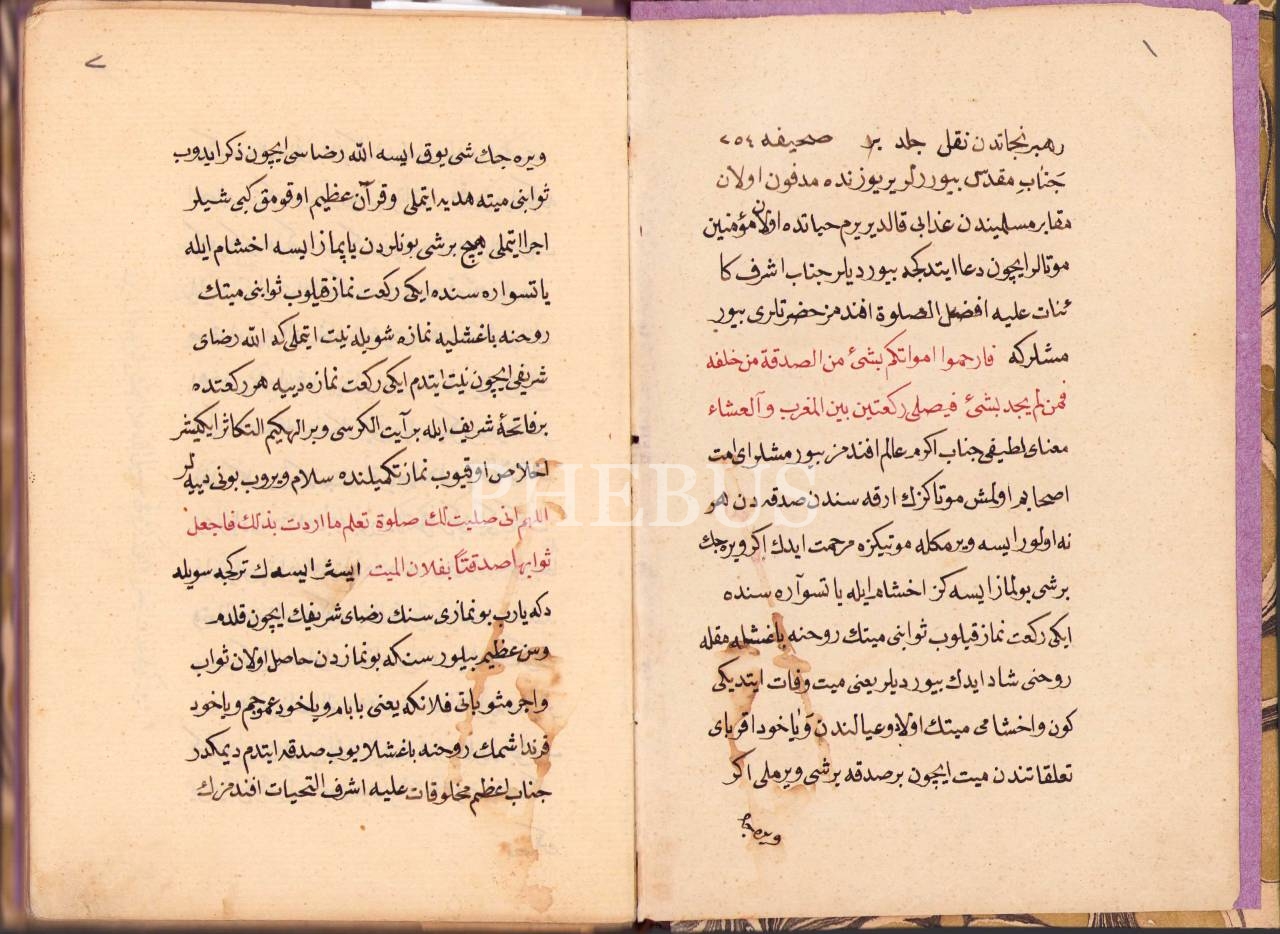 ١
رهبر نجاتدن نقل جلد بر صحیفه ٢٥٤
جناب مقدس بیوررلر یر یوزنده مدفون اولان
مقابر مسلمیندن عذابی قالدیریرم حیاتده اولان مؤمنین
موتالر ایچون دعا ایتدکجه بیوردیلر جناب اشرف کا
ئنات علیه افضل الصلوة افندمز حضرتلری بیور
مشلرکه فارحموا امواتکم بشئ من الصدقة من خلفه
فمن لم یجد بشئ فیصلی رکعتین بین المغرب و آلعشاء
معنای لطیفی جناب اکرم عالم افندمز بیورمشلر ای امت
اصحابم اولمش موتاکزك ارقه سندن صدقه دن هر
نه اولور ایسه ویرمکله موتیکزه مرحمت ایدك اکر ویره جك
برشی بولماز ایسه کز اخشام ایله یاتسو آره سنده
ایکی رکعت نماز قیلوب ثوابنی میتك روحنه باغشلمقله
روحنی شاد ایدك بیوردیلر یعنی میت وفات ایتدیکی
کون و اخشامی میتك اولاد و عیالندن و یاخود اقربای
تعلقاتندن میت ایچون بر صدقه برشی ویرملی اکر
ویره جك
٢
ویره جك شی یوق ایسه الله رضاسی ایچون ذکر ایدوب
ثوابنی میته هدیه ایتملی و قرآن عظیم اوقومق کبی شیلر
اجرا ایتملی هیچ برشی بونلردن یاپماز ایسه اخشام ایله
یاتسو اره سنده ایکی رکعت نماز قیلوب ثوابنی میتك
روحنه باغشلیه نمازه شویله نیت ایتملی که الله رضای
شریفی ایچون نیت ایتدم ایکی رکعت نمازه دییه هر رکعتده
بر فاتحۀ شریف ایله بر آیت الکرسی و بر الهیکم التکاثر ایکیشر
اخلاص اوقیوب نماز تکمیلنده سلام ویروب بونی دییه لر
اللهم انی صلیت لك صلوة تعلم ما اردت بذلك فاجعل
ثوابها صدقتتًا بفلان المیت ایستر ایسه ك ترکجه سویله
دکه یارب بو نمازی سنك رضای شریفك ایچون قلدم
و سن عظیم بیلورسنکه بو نمازدن حاصل اولان ثواب
و اجر مثوباتی فلانکه یعنی بابام و یاخود عموجم و یاخود
قرنداشمك روحنه باغشلایوب صدقه ایتدم دیمکدر
جناب اعظم مخلوقات علیه اشرف التحیات افندمزك
PHEBUS